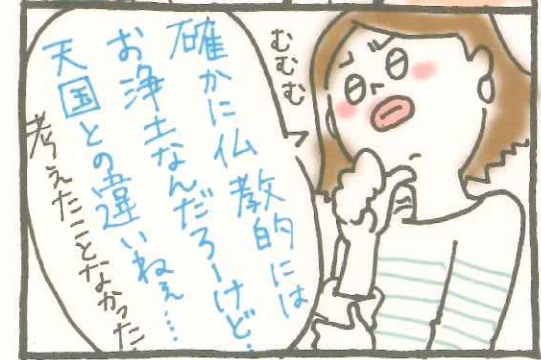 むむむ
確かに仏教的には
お浄土なんだろーけど…
天国との違いねぇ…
考えたことなかった